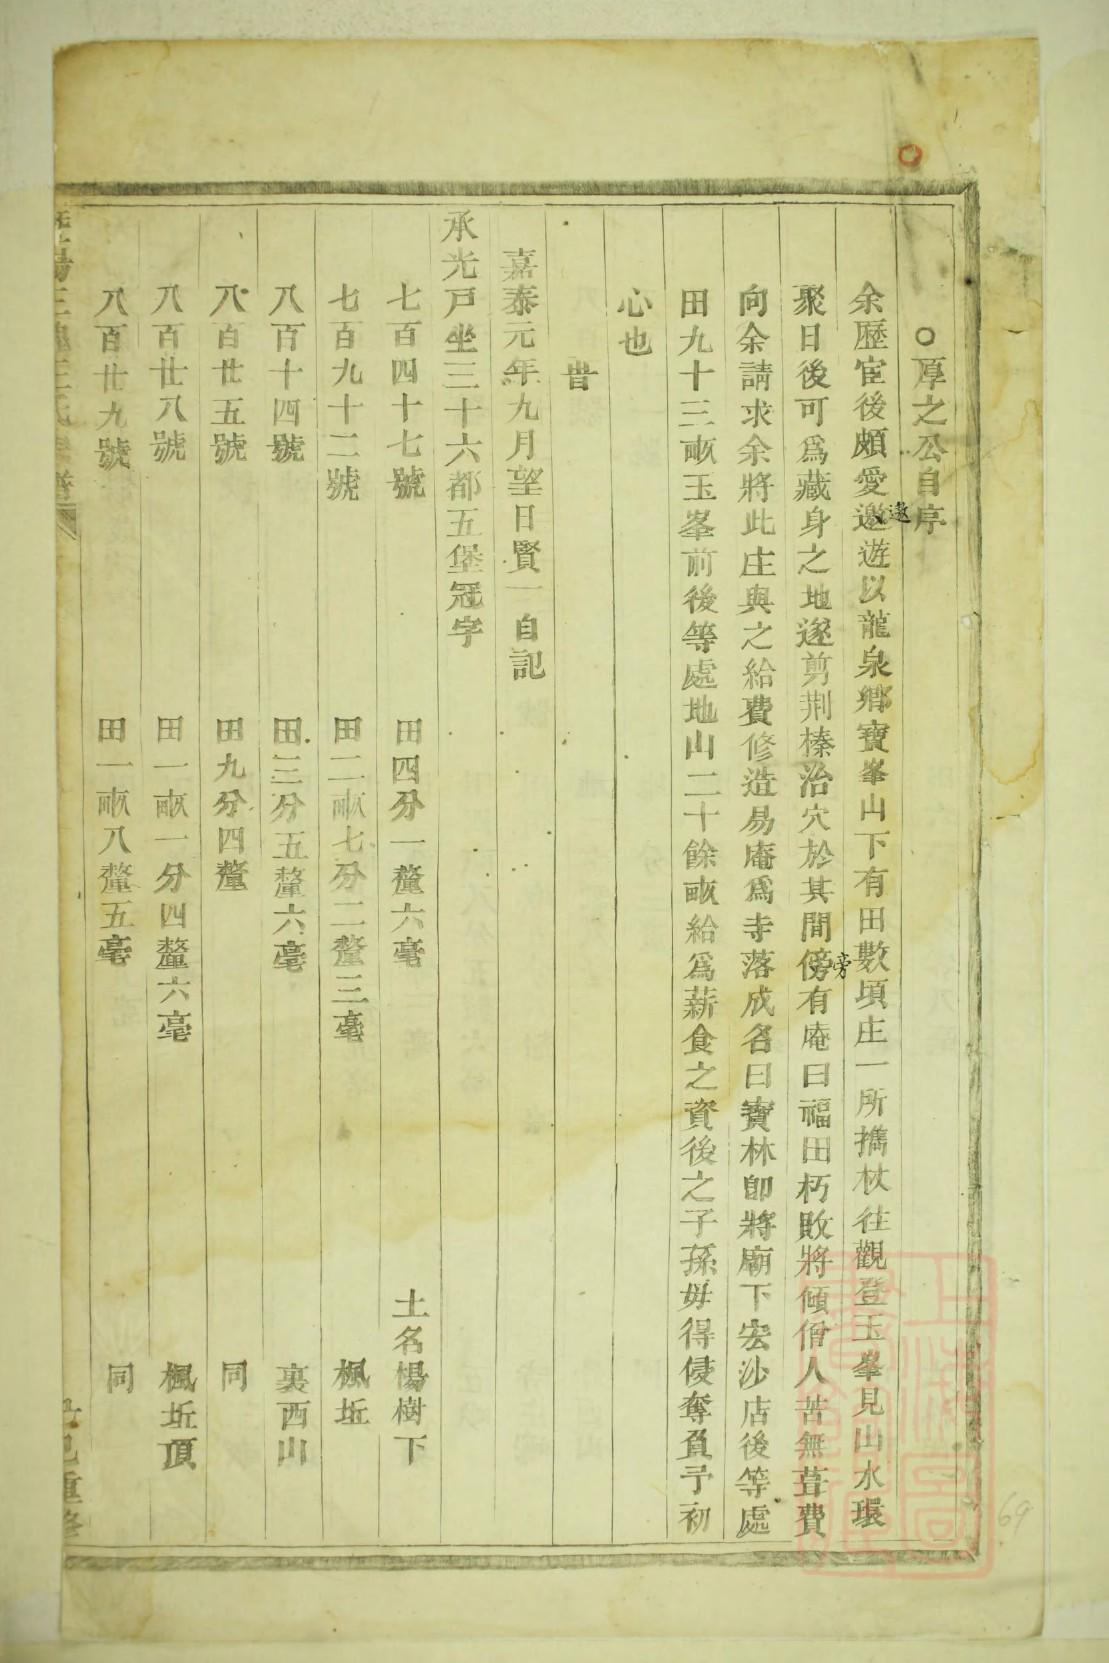 ○厚之公自序
余歷宦後頗愛邀遊以龍泉鄉寶峯山下有田數頃庄一所攜杖往觀登玉峯見山水環
遨
聚日後可爲藏身之地遂剪荆榛治穴於其間傍有庵曰福田朽敗將傾僧人苦無葺費
旁
向余請求余將此庄與之給費修造易庵爲寺落成名曰寶林卽將廟下宏沙店後等處
田九十三畝玉峯前後等處地山二十餘畝給爲薪食之資後之子孫毋得侵奪負予初
心也
旹
嘉泰元年九月望日賢一自記
承光戸坐三十六都五堡冠字
七百四十七號 田四分一釐六毫 土名楊樹下
七百九十二號 田二畝七分二釐三毫 楓坵
八百十四號 田三分五釐六毫 裏西山
八百廿五號 田九分四釐 同
八百廿八號 田一畝一分四釐六毫 楓坵頂
八百廿九號 田一畝八釐五毫 同
69